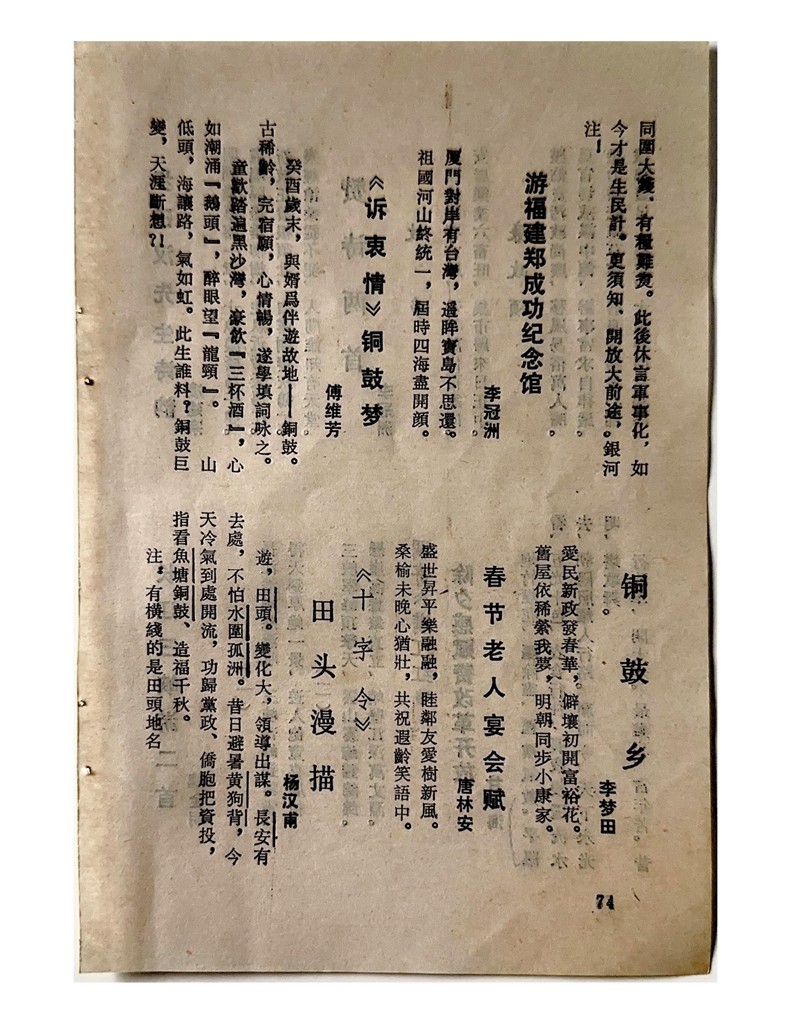 同圍大爨、有糧難煮。此後休言軍事化，如
今才是生民計。更須知、開放大前途，銀河
注！
游福建郑成功纪念馆
李冠洲
厦門對岸有台灣，遥眸寶島不思還。
祖國河山終統一，屆時四海盡開顔。
《诉衷情》铜鼓梦
傅维芳
癸酉歲末，與婿爲伴遊故地——銅鼓。
古稀齡，完宿願，心情暢，遂學填詞咏之。
童歡踏遍黑沙灣，豪飲『三杯酒』，心
如潮涌『鵝頭』，醉眼望『龍頸』。　山
低頭，海讓路，氣如虹。此生誰料？銅鼓巨
變，天涯斷想？！
铜鼓乡
李梦田
愛民新政發春華，僻壤初開富裕花。
舊屋依稀縈我夢，明朝同步小康家。
春节老人宴会赋
唐林安
盛世昇平樂融融，睦鄰友愛樹新風。
桑榆未晚心猶壯，共祝遐齡笑語中。
《十字令》
田头漫描
杨汉甫
遊，田頭。變化大，領導出謀。長安有
去處，不怕水圍孤洲。昔日避暑黄狗背，今
天冷氣到處開流，功歸黨政、僑胞把資投，
指看魚塘銅鼓、造福千秋。
注：有横綫的是田頭地名
74